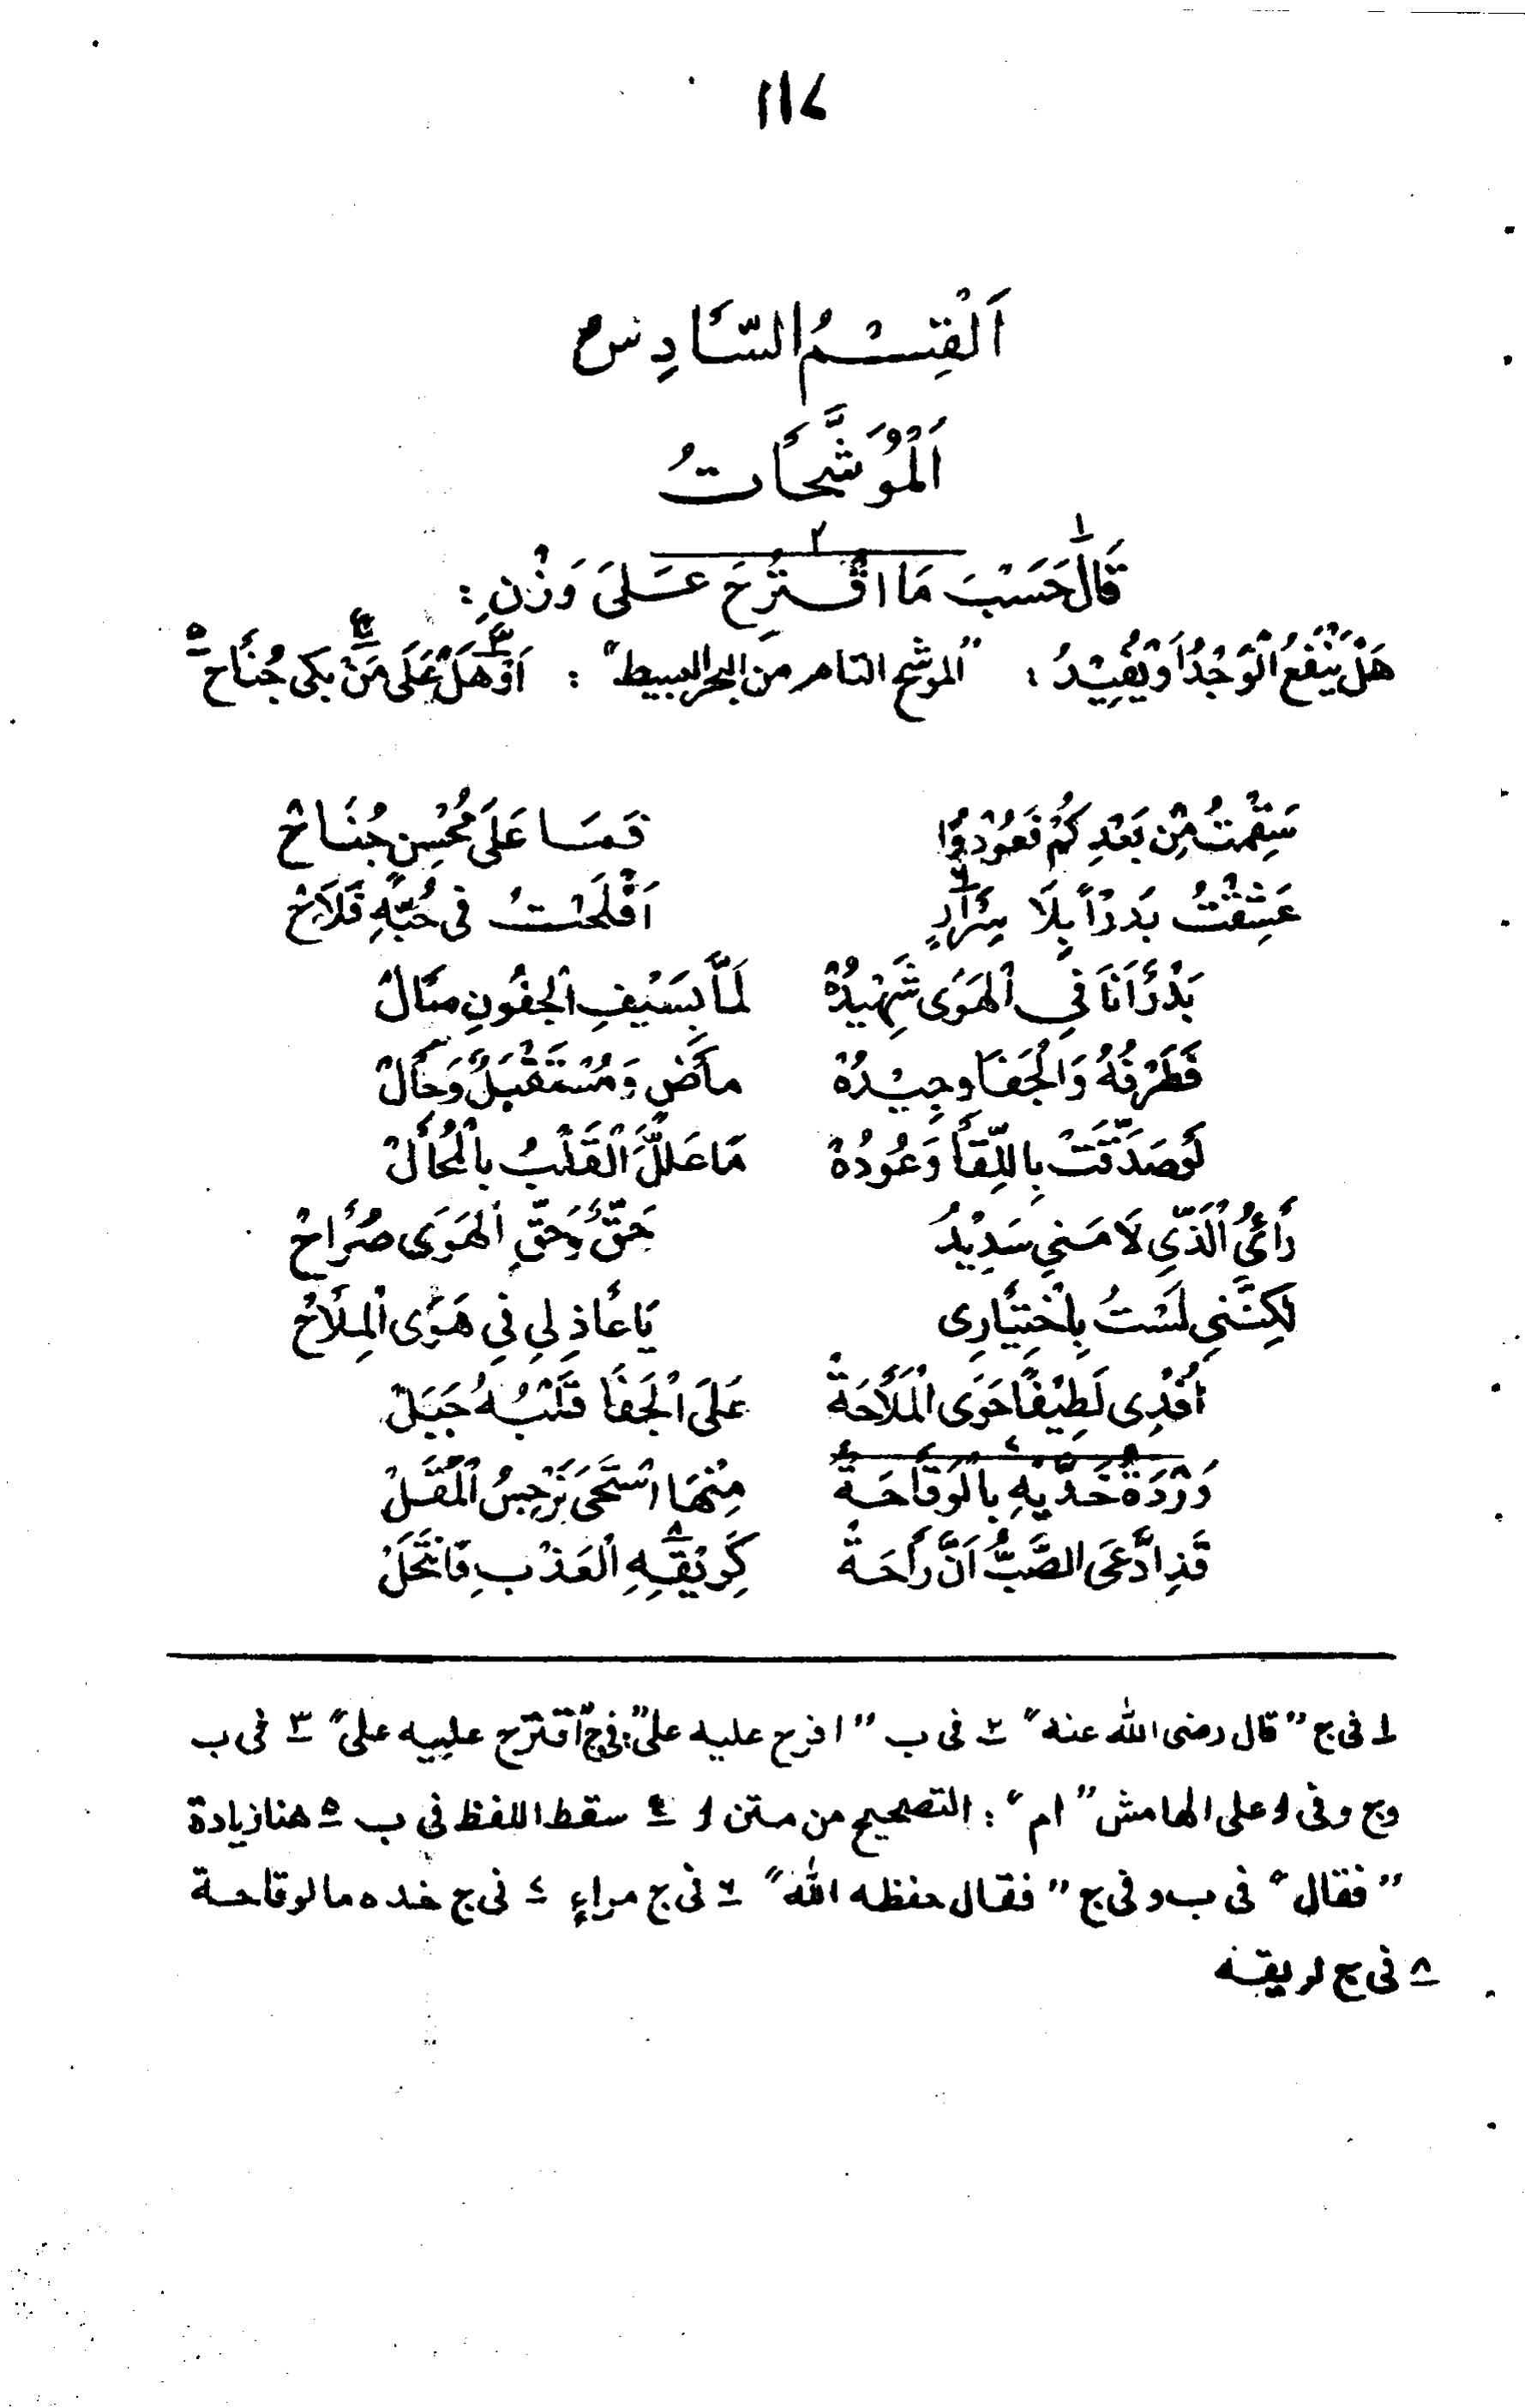 ۱۱۷
اَلْقِسْمُ السَّادِس
اَلْمُوَشَّحَاتُ
قَالَ۱ حَسْبَ مَا اقْتُرِحَ عَلىَ۲ وَزْنِ :
هَلْ يَنْفَعُ الْوَجْدُ اَوْ يُفِيْدُ : "الموشح التام من البحر البسيط" : اَوْ۳ هَلْ عَلَى مَنْ۴ بَكى جُنَاح۵
سَقِمْتُ مِنْ بَعْدِكُمْ فَعُوْدُوْا فَمَا عَلَى مُحْسِنٍ جُنَاحْ
عَشِقْتُ بَدْراً بِلَا سِرَارٍ۶ اَفْلَحْتُ فى حُبِّهِ فَلَاحْ
بَدْرٌ اَنَا فِي الْهَوَى شَهِيْدُهْ لَمَّا بِسَيْفِ الْجفُونِ صَالْ
فَطَرْفُهُ وَالْجَفَا وجِيْدُهْ مَاضٍ وَمُسْتَقْبَلٌ وَحَالْ
لَوصَدَّقَتْ بِاللِّقَا وَعُودُهْ مَا عَلَّلَ الْقَلْبُ بِالْمُحَالْ
رَأْىُ الَّذِي لَامَنِي سَدِيْدُ حَقٌّ وَحَقِّ الْهَوَى صُرَاحْ
لٰكِنَّنِي لَسْتُ بِاخْتِيَارِى يَا عَاذِلِي فِي هَوَى الْمِلَاحْ
اَفْدِى لَطِيْفًا حَوَى الْمَلَاحَةْ عَلَى الْجَفَا قَلْبُهُ جَبَلْ
وَرْدَةُ خَدَّيْهِ بالْوَقَاحَةْ۷ مِنْهَا اسْتَحَى نَرْجِسُ الْمُقَلْ
قَدِ ادَّعَى الصَّبُّ اَنَّ رَاحَةْ كَرِيْقِهِ۸ الْعَذْبِ فَانْتَحَلْ
۱ فى ج "قال رضى الله عنه" ۲ فى ب "افرح عليه على" : فى ج "اقترح عليه على" ۳ فى ب
وج وفى ا وعلى الهامش "ام" : التصحيح من متن ا ۴ سقط اللفظ فى ب ۵ هنا زيادة
"فقال" فى ب وفى ج "فقال حفظه الله" ۶ فى ج مراءٍ ۷ فى ج خده مالوقاحة
۸ فى ج لريقه